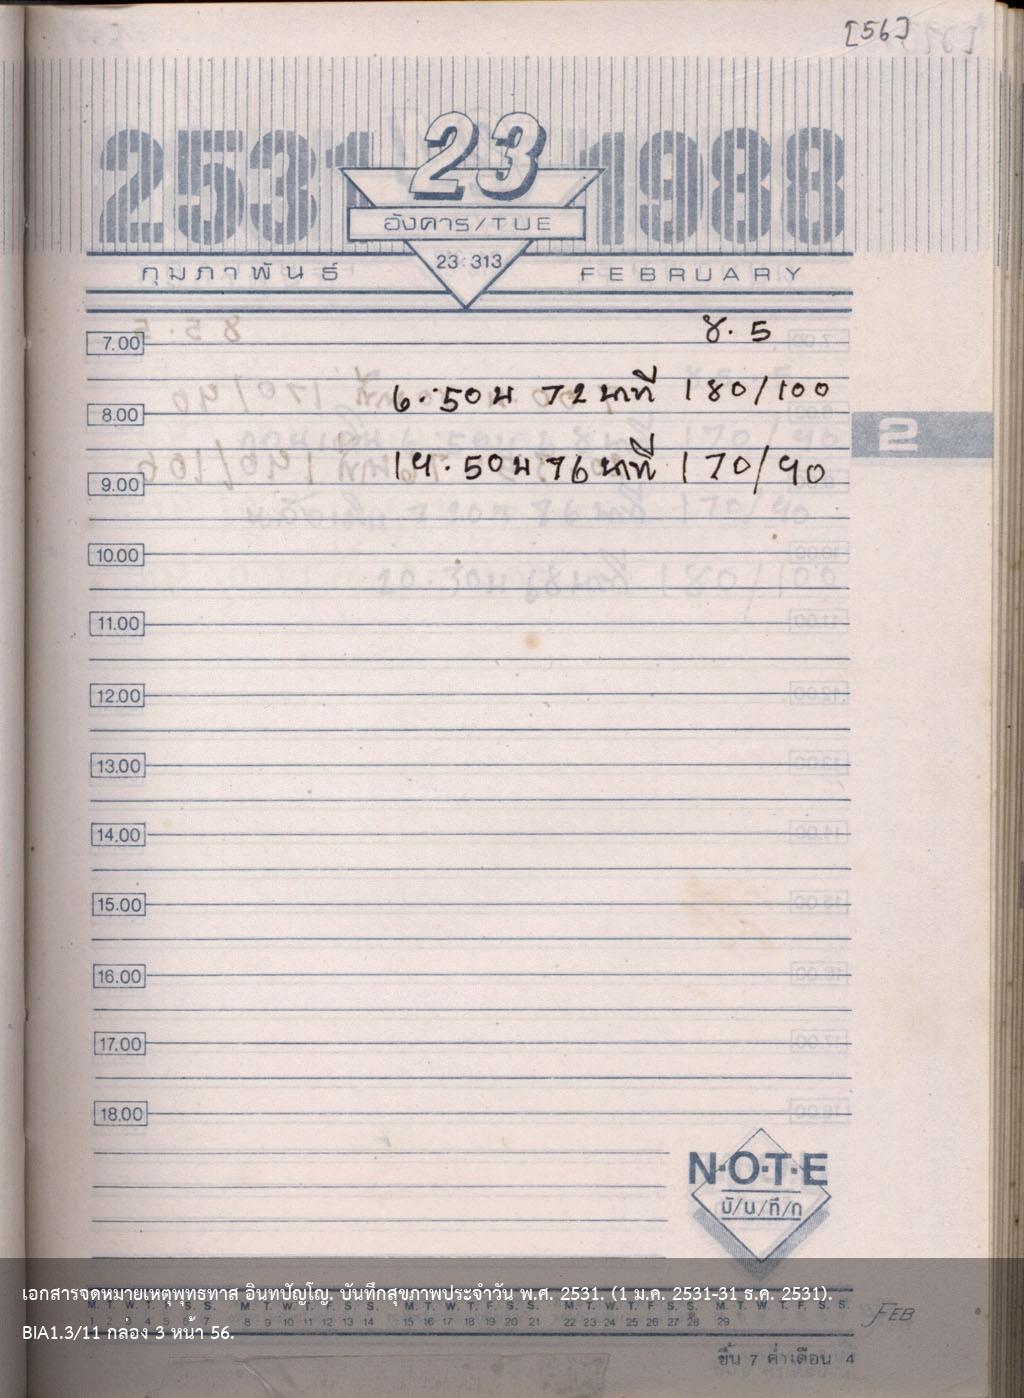 [56]
2531 23 1988
อังคาร/TUE
23:313
กุมภาพันธ์ FEBRUARY
7.00 8.5
6.50 น 72 นาที 180/100
8.00
19.50 น 76 นาที 170/90
9.00
2
10.00
11.00
12.00
13.00
14.00
15.00
16.00
17.00
18.00
N·O·T·E
บั/น/ทึ/ก
เอกสารจดหมายเหตุพุทธทาส อินทปัญโญ. บันทึกสุขภาพประจำวัน พ.ศ. 2531. (1 ม.ค. 2531-31 ธ.ค. 2531).
M. T. W. T. F. S. S. M. T. W. T. F. S. S. M. T. W. T. F. S. S. M. T. W. T. F. S. S. M.
1 2 3 4 5 6 7 8 9 10 11 12 13 14 15 16 17 18 19 20 21 22 23 24 25 26 27 28 29
FEB
BIA1.3/11 กล่อง 3 หน้า 56.
ขึ้น 7 ค่ำเดือน 4